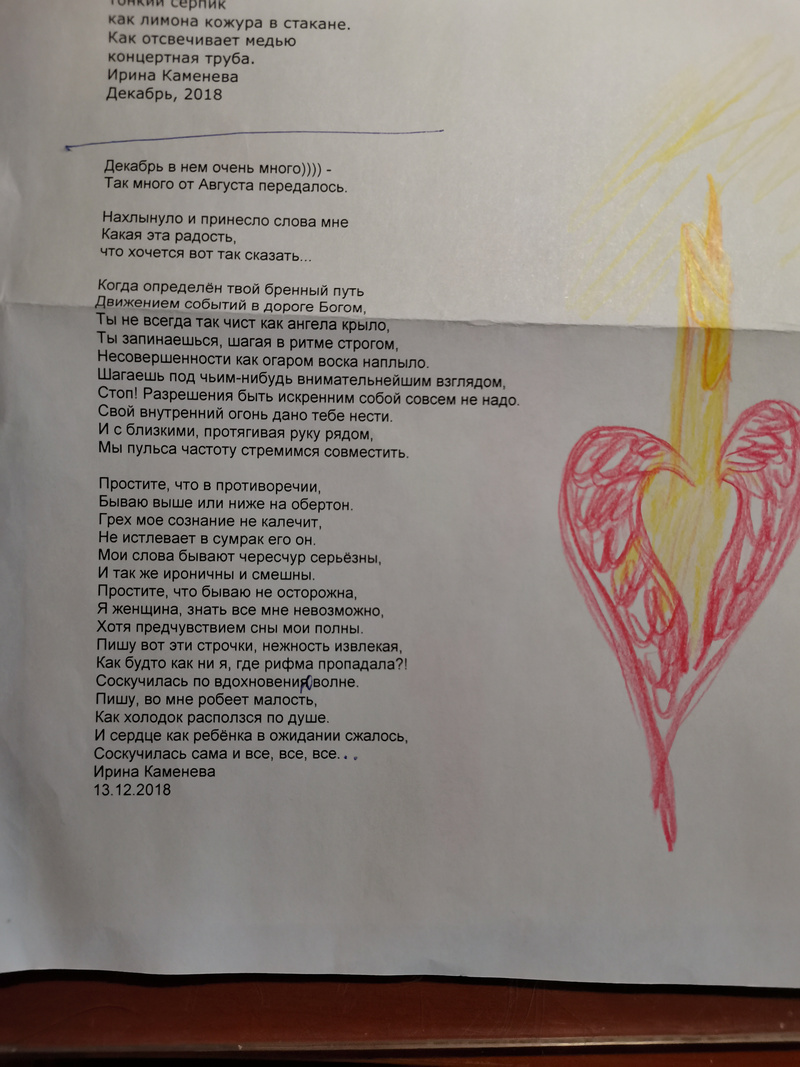 тонкий серпик
как лимона кожура в стакане.
Как отсвечивает медью
концертная труба.
Ирина Каменева
Декабрь, 2018
Декабрь в нем очень много)))) -
Так много от Августа передалось.
Нахлынуло и принесло слова мне
Какая эта радость,
что хочется вот так сказать...
Когда определён твой бренный путь
Движением событий в дороге Богом,
Ты не всегда так чист как ангела крыло,
Ты запинаешься, шагая в ритме строгом,
Несовершенности как огаром воска наплыло.
Шагаешь под чьим-нибудь внимательнейшим взглядом,
Стоп! Разрешения быть искренним собой совсем не надо.
Свой внутренний огонь дано тебе нести.
И с близкими, протягивая руку рядом,
Мы пульса частоту стремимся совместить.
Простите, что в противоречии,
Бываю выше или ниже на обертон.
Грех мое сознание не калечит,
Не истлевает в сумрак его он.
Мои слова бывают чересчур серьёзны,
И так же ироничны и смешны.
Простите, что бываю не осторожна,
Я женщина, знать все мне невозможно,
Хотя предчувствием сны мои полны.
Пишу вот эти строчки, нежность извлекая,
Как будто как ни я, где рифма пропадала?!
Соскучилась по вдохновения волне.
Пишу, во мне робеет малость,
Как холодок расползся по душе.
И сердце как ребёнка в ожидании сжалось,
Соскучилась сама и все, все, все...
Ирина Каменева
13.12.2018